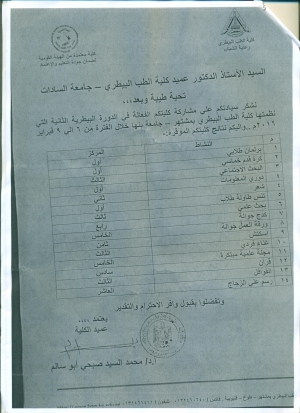 كلية الطب البيطري
رعاية الشباب
كلية معتمدة من الهيئة القومية
لضمان جودة التعليم والاعتماد
السيد الأستاذ الدكتور عميد كلية الطب البيطري – جامعة السادات
تحية طيبة وبعد،،،
نشكر سيادتكم علي مشاركة كليتكم الفعالة في الدورة البيطرية الثانية التي
نظمتها كلية الطب البيطري بمشتهر – جامعة بنها خلال الفترة من ٦ إلي ٩ فبراير
٢٠١٦م، واليكم نتائج كليتكم الموقرة:
م النشاط المركز
١ برلمان طلابي الأول
٢ كرة قدم خماسي أول
٣ البحث الاجتماعي أول
٤ دوري المعلومات الثالث
٥ شعر أول
٦ تنس طاولة طلاب ثاني
٧ بحث علمي أول
٨ كدج جوالة ثالث
٩ ورقة العمل جوالة رابع
١٠ اسكتش الخامس
١١ غناء فردي ثامن
١٢ مجلة علمية مبتكرة الثالث
١٣ قرآن الخامس
سادس
ثالث
رسم علي الزجاج العاشر
وتفضلوا بقبول وافر الاحترام والتقدير
يعتمد ،،،
عميد الكلية
أ.د/ محمد السيد صبحي أبو سالم